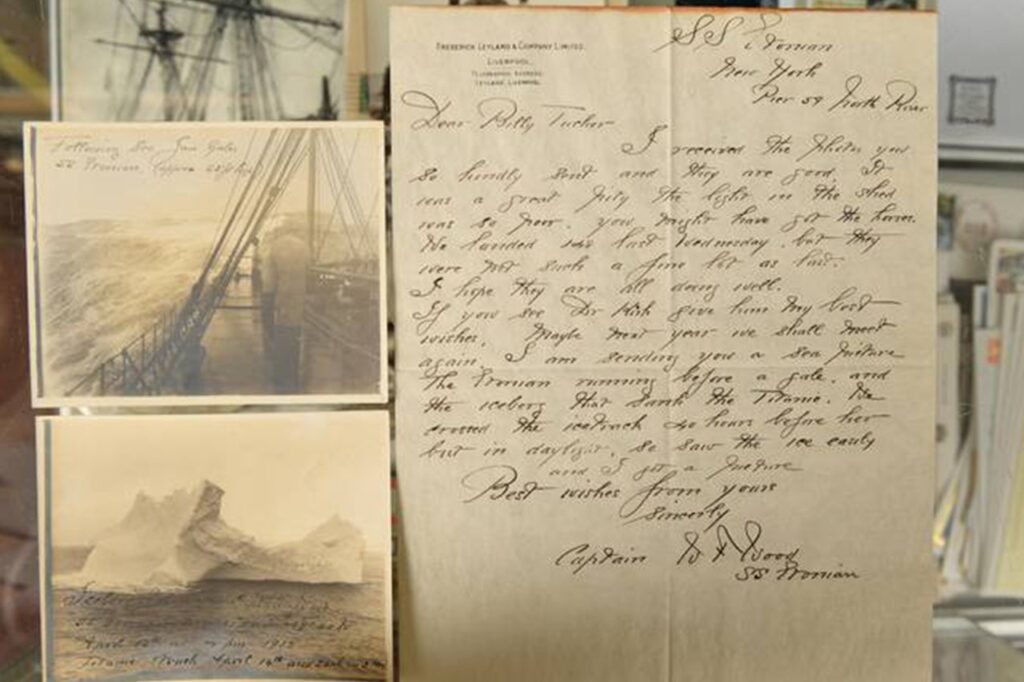 Following Sea
SS Etonian,
April 12th 1912
Titanic Struck April 14th and
FREDERICK LEYLAND & COMPANY LIMITED.
LIVERPOOL.
TELEGRAPHIC ADDRESS
LEYLAND, LIVERPOOL.
SS Etonian
New York
Pier 59 North River
Dear Billy Tucker
I received the photos you
so kindly sent and they are good. It
was a great pity the light in the shed
was so poor. you might have got the horses.
We landed last Wednesday, but they
were not such a fine lot as last.
I hope they are all doing well.
If you see Dr give him my best
wishes. Maybe next year we shall meet
again. I am sending you a sea picture
the Etonian running before a gale, and
the iceberg that sank the Titanic. We
crossed the icetrack 40 hours before her
but in daylight, so saw the ice easily
and I got a picture
Best wishes from yours
Sincerly
Captain W F Wood
SS Etonian